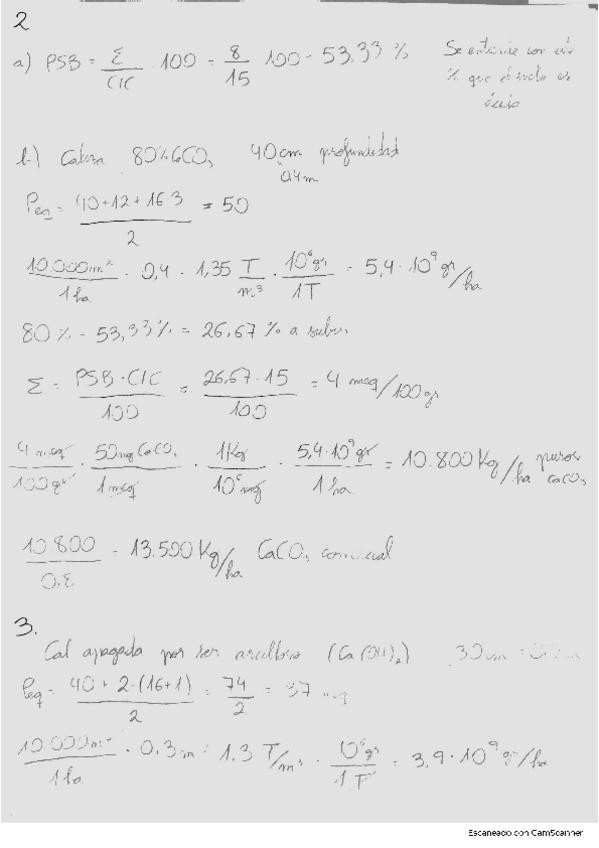 2
a) PSB = Σ/CIC · 100 = 8/15 · 100 = 53,33 % Se entiende con este
% que el suelo es
ácido
b) Caliza 80% CaCO3 40 cm profundidad
0,4 m
Peq = (40+12+16·3)/2 = 50
10.000 m²/1 ha · 0,4 · 1,35 T/m³ · 10⁶ gr/1 T = 5,4·10⁹ gr/ha
80 % - 53,33 % = 26,67 % a subir
Σ = PSB·CIC/100 = 26,67·15/100 = 4 meq/100 gr
4 meq/100 gr · 50 mg CaCO3/1 meq · 1 Kg/10⁶ mg · 5,4·10⁹ gr/1 ha = 10.800 Kg/ha puros CaCO3
10.800/0.8 = 13.500 Kg/ha CaCO3 comercial
3.
Cal apagada por ser arcilloso (Ca(OH)2) 30 cm =
Peq = (40 + 2·(16+1))/2 = 74/2 = 37
10.000 m²/1 ha · 0.3 m · 1.3 T/m³ · 10⁶ gr/1 T = 3.9·10⁹ gr/ha
Escaneado con CamScanner